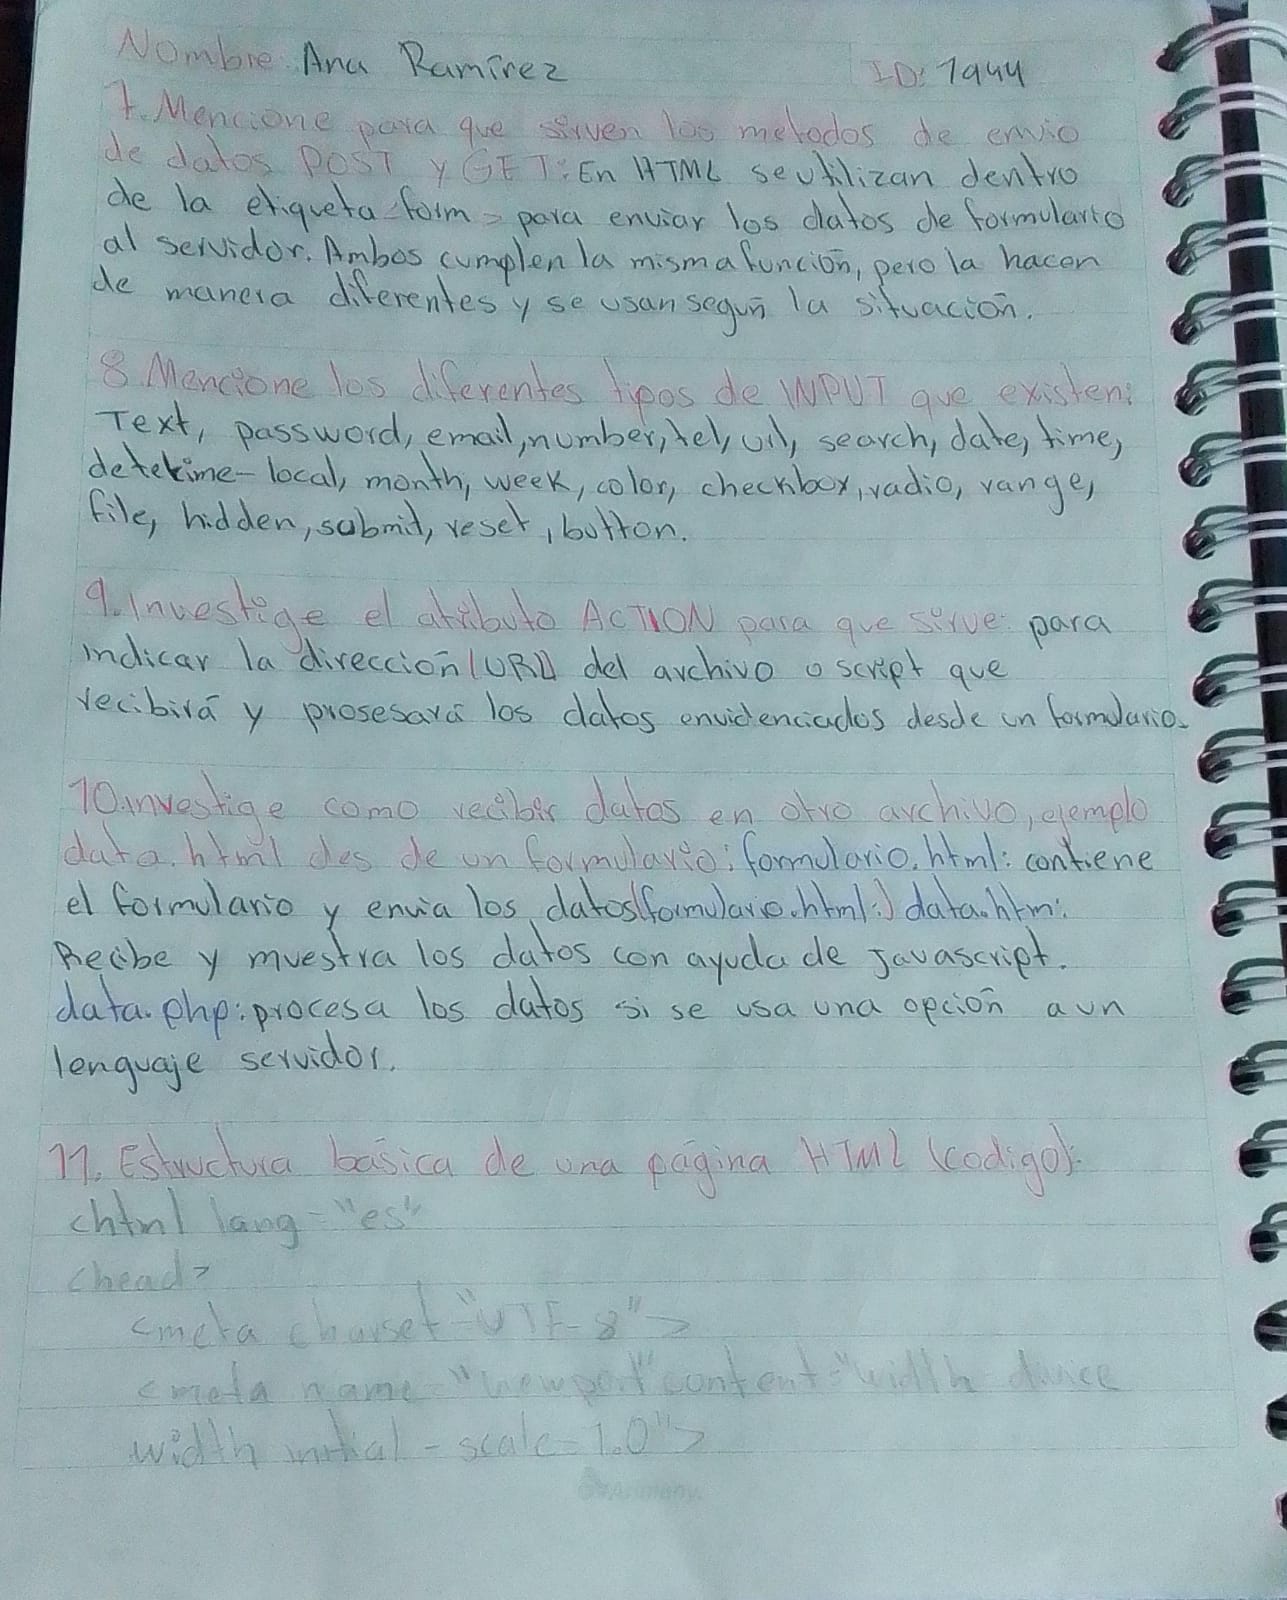 Nombre: Ana Ramírez ID: 1944
7. Mencione para que sirven los metodos de envio
de datos POST y GET: En HTML se utilizan dentro
de la etiqueta form> para enviar los datos de formulario
al servidor. Ambos cumplen la misma función, pero la hacen
de manera diferentes y se usan según la situación.
8. Mencione los diferentes tipos de INPUT que existen:
Text, password, email, number, tel, url, search, date, time,
detetime-local, month, week, color, checkbox, radio, range,
file, hidden, submit, reset, button.
9. Investige el atributo ACTION para que sirve: para
indicar la dirección (URL) del archivo o script que
recibirá y prosesará los datos envidenciados desde un formulario.
10. investige como recibir datos en otro archivo, ejemplo
data.html des de un formulario: formulario.html: contiene
el formulario y envia los datos (formulario.html:) data.htm:
Recibe y muestra los datos con ayuda de Javascript.
data.php: procesa los datos si se usa una opción a un
lenguaje servidor.
11. Estructura básica de una página HTML (codigo):
<html lang="es"
<head>
<meta charset="UTF-8">
<meta name="viewport" content="width divice
width initial-scale=1.0">